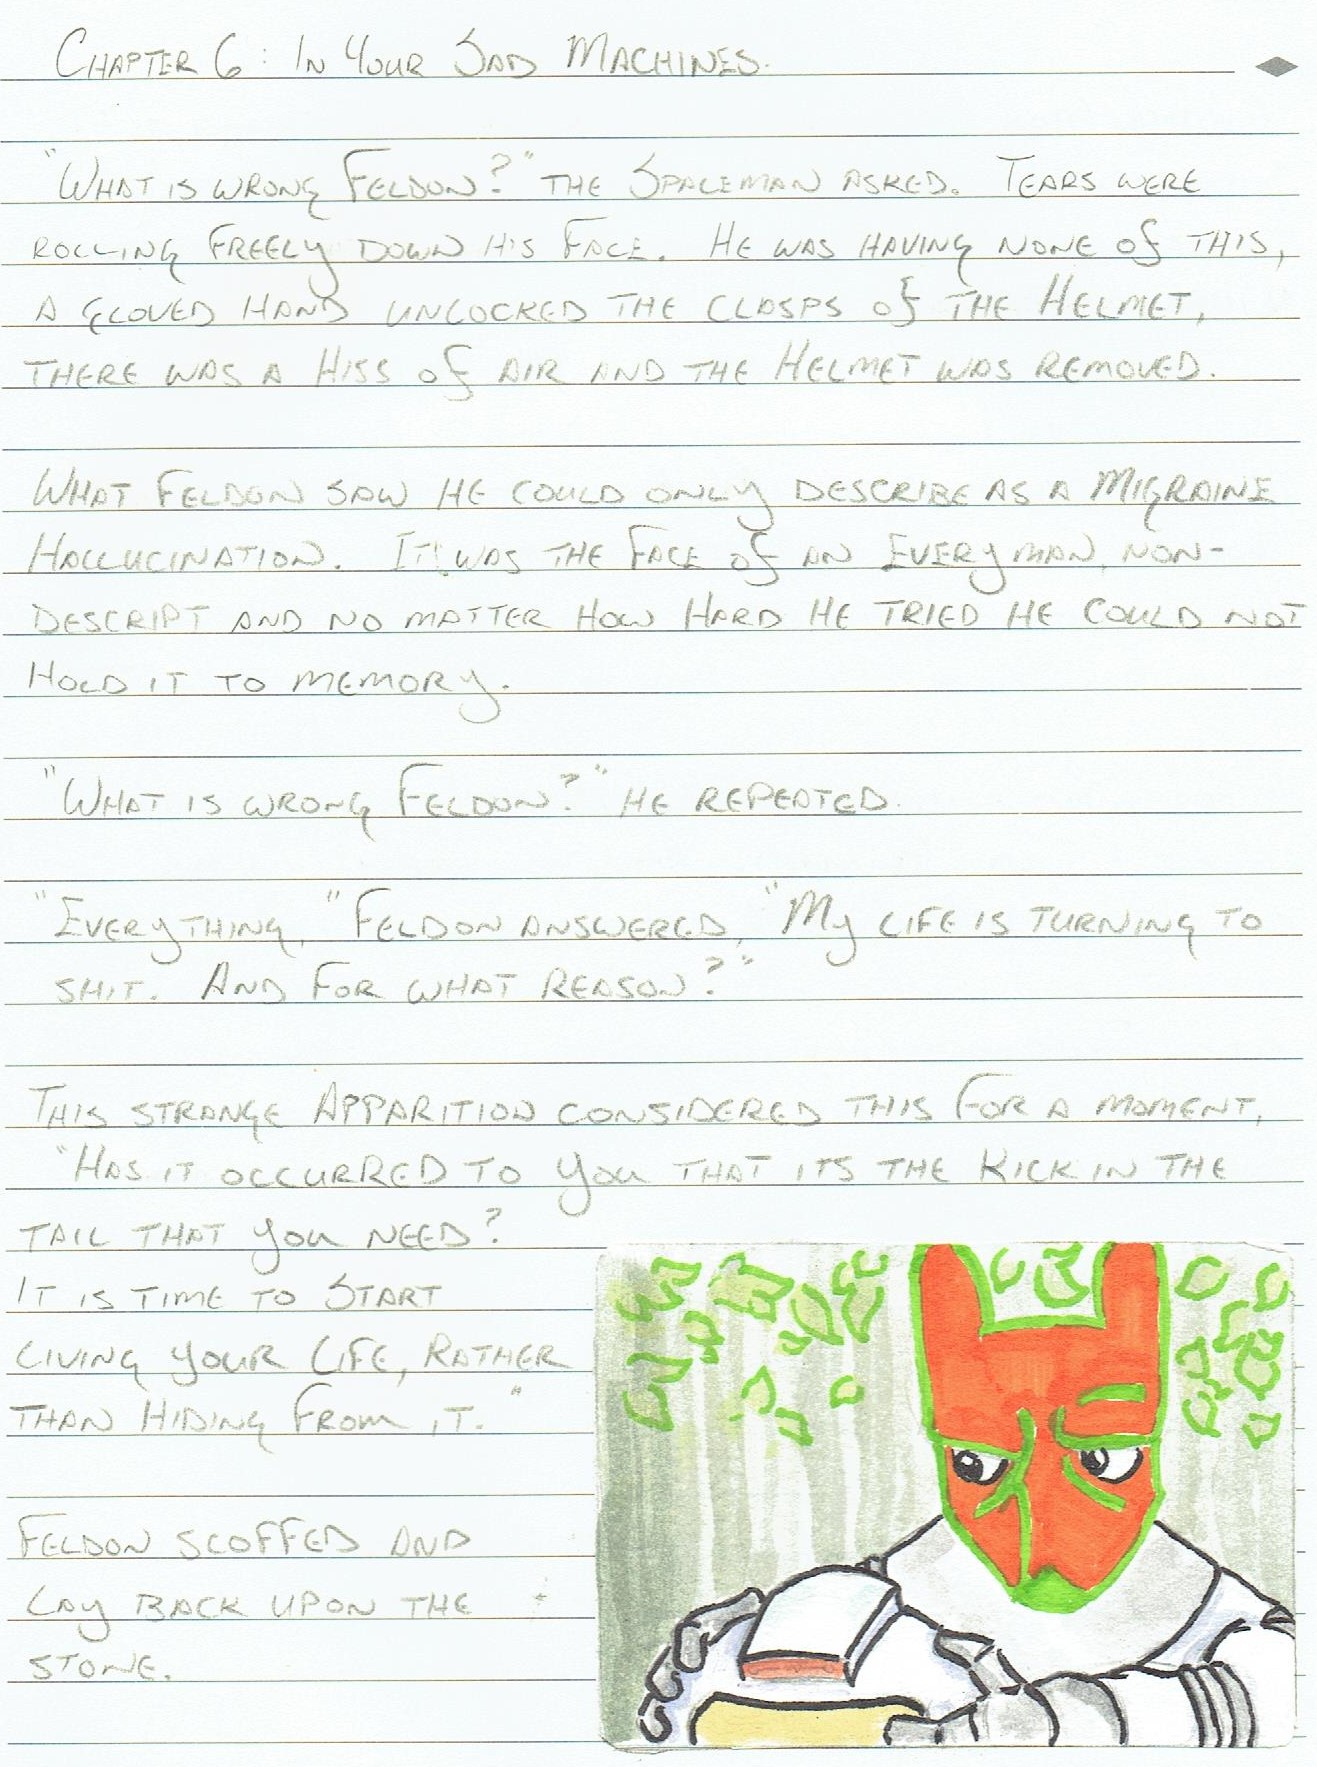 Chapter 6: In Your Sad Machines.
"What is wrong Feldon?" the Spaceman asked. Tears were
rolling freely down his face. He was having none of this,
a gloved hand unlocked the clasps of the Helmet,
there was a Hiss of air and the Helmet was removed.
What Feldon saw he could only describe as a Migraine
Hallucination. It was the face of an Everyman, non-
descript and no matter how hard he tried he could not
hold it to memory.
"What is wrong Feldon?" he repeated.
"Everything," Feldon answered, "My life is turning to
shit. And for what reason?"
This strange Apparition considered this for a moment,
"Has it occurred to you that its the kick in the
tail that you need?
It is time to start
living your life, rather
than hiding from it."
Feldon scoffed and
lay back upon the
stone.